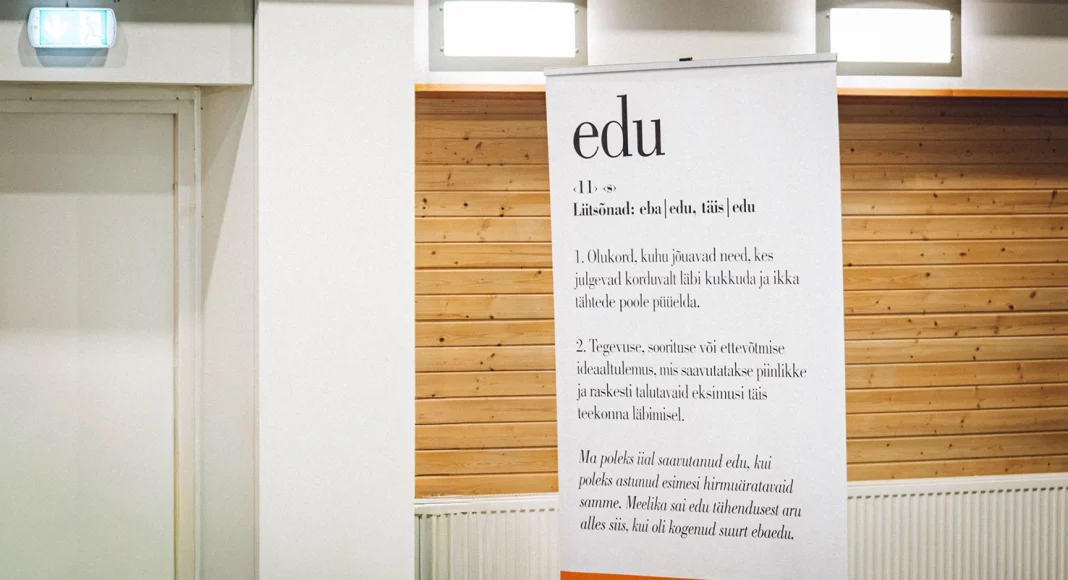 edu
‹11› ‹s›
Liitsõnad: eba|edu, täis|edu
1. Olukord, kuhu jõuavad need, kes
julgevad korduvalt läbi kukkuda ja ikka
tähtede poole püüelda.
2. Tegevuse, soorituse või ettevõtmise
ideaaltulemus, mis saavutatakse piinlikke
ja raskesti talutavaid eksimusi täis
teekonna läbimisel.
Ma poleks iial saavutanud edu, kui
poleks astunud esimesi hirmuäratavaid
samme. Meelika sai edu tähendusest aru
alles siis, kui oli kogenud suurt ebaedu.